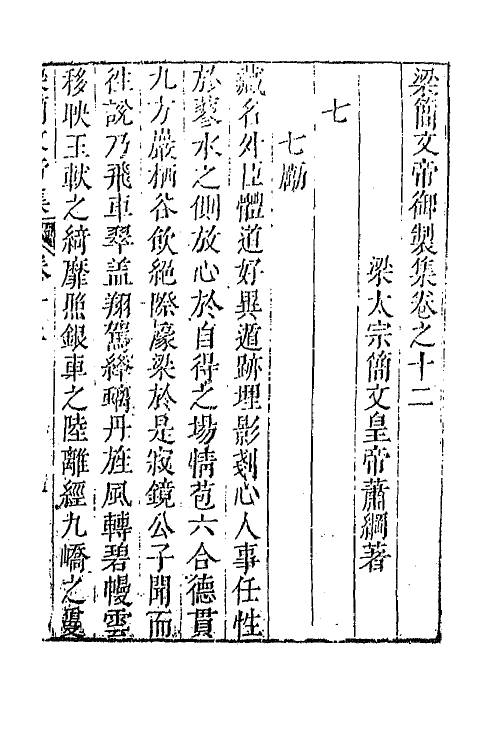 梁簡文帝御製集卷之十二
梁太宗簡文皇帝蕭綱著
七
七勵
藏名外臣體道好異遁跡埋影剗心人事任性
於蓼水之側放心於自得之場情苞六合德貫
九方巖栖谷飲絕際濠梁於是寂鏡公子聞而
往說乃飛車翠盖翔鴛繂驈丹旌風轉碧幔雲
移映玉軑之綺靡照銀車之陸離經九嶠之夐